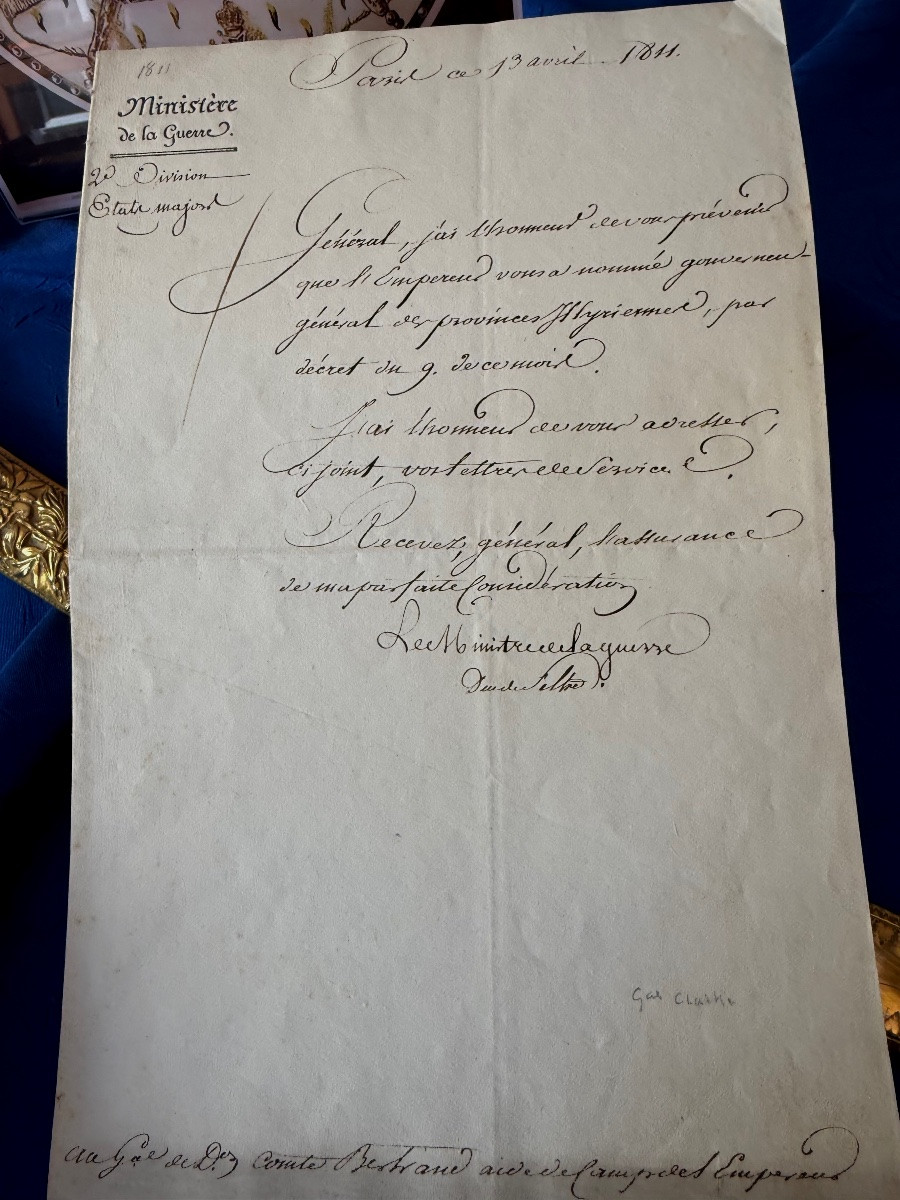 1811
Paris ce 13 avril 1811.
Ministère
de la Guerre.
2e Division
Etats majors
Général, j'ai l'honneur de vous prévenir
que l'Empereur vous a nommé gouverneur
général des provinces Illyriennes, par
décret du 9. de ce mois.
J'ai l'honneur de vous adresser,
ci joint, vos lettres de Service.
Recevez, général, l'assurance
de ma parfaite Considération
Le Ministre de la guerre
Duc de Feltre.
Gal Clarke
au Gal de Don Comte Bertrand aide de Camp de l'Empereur